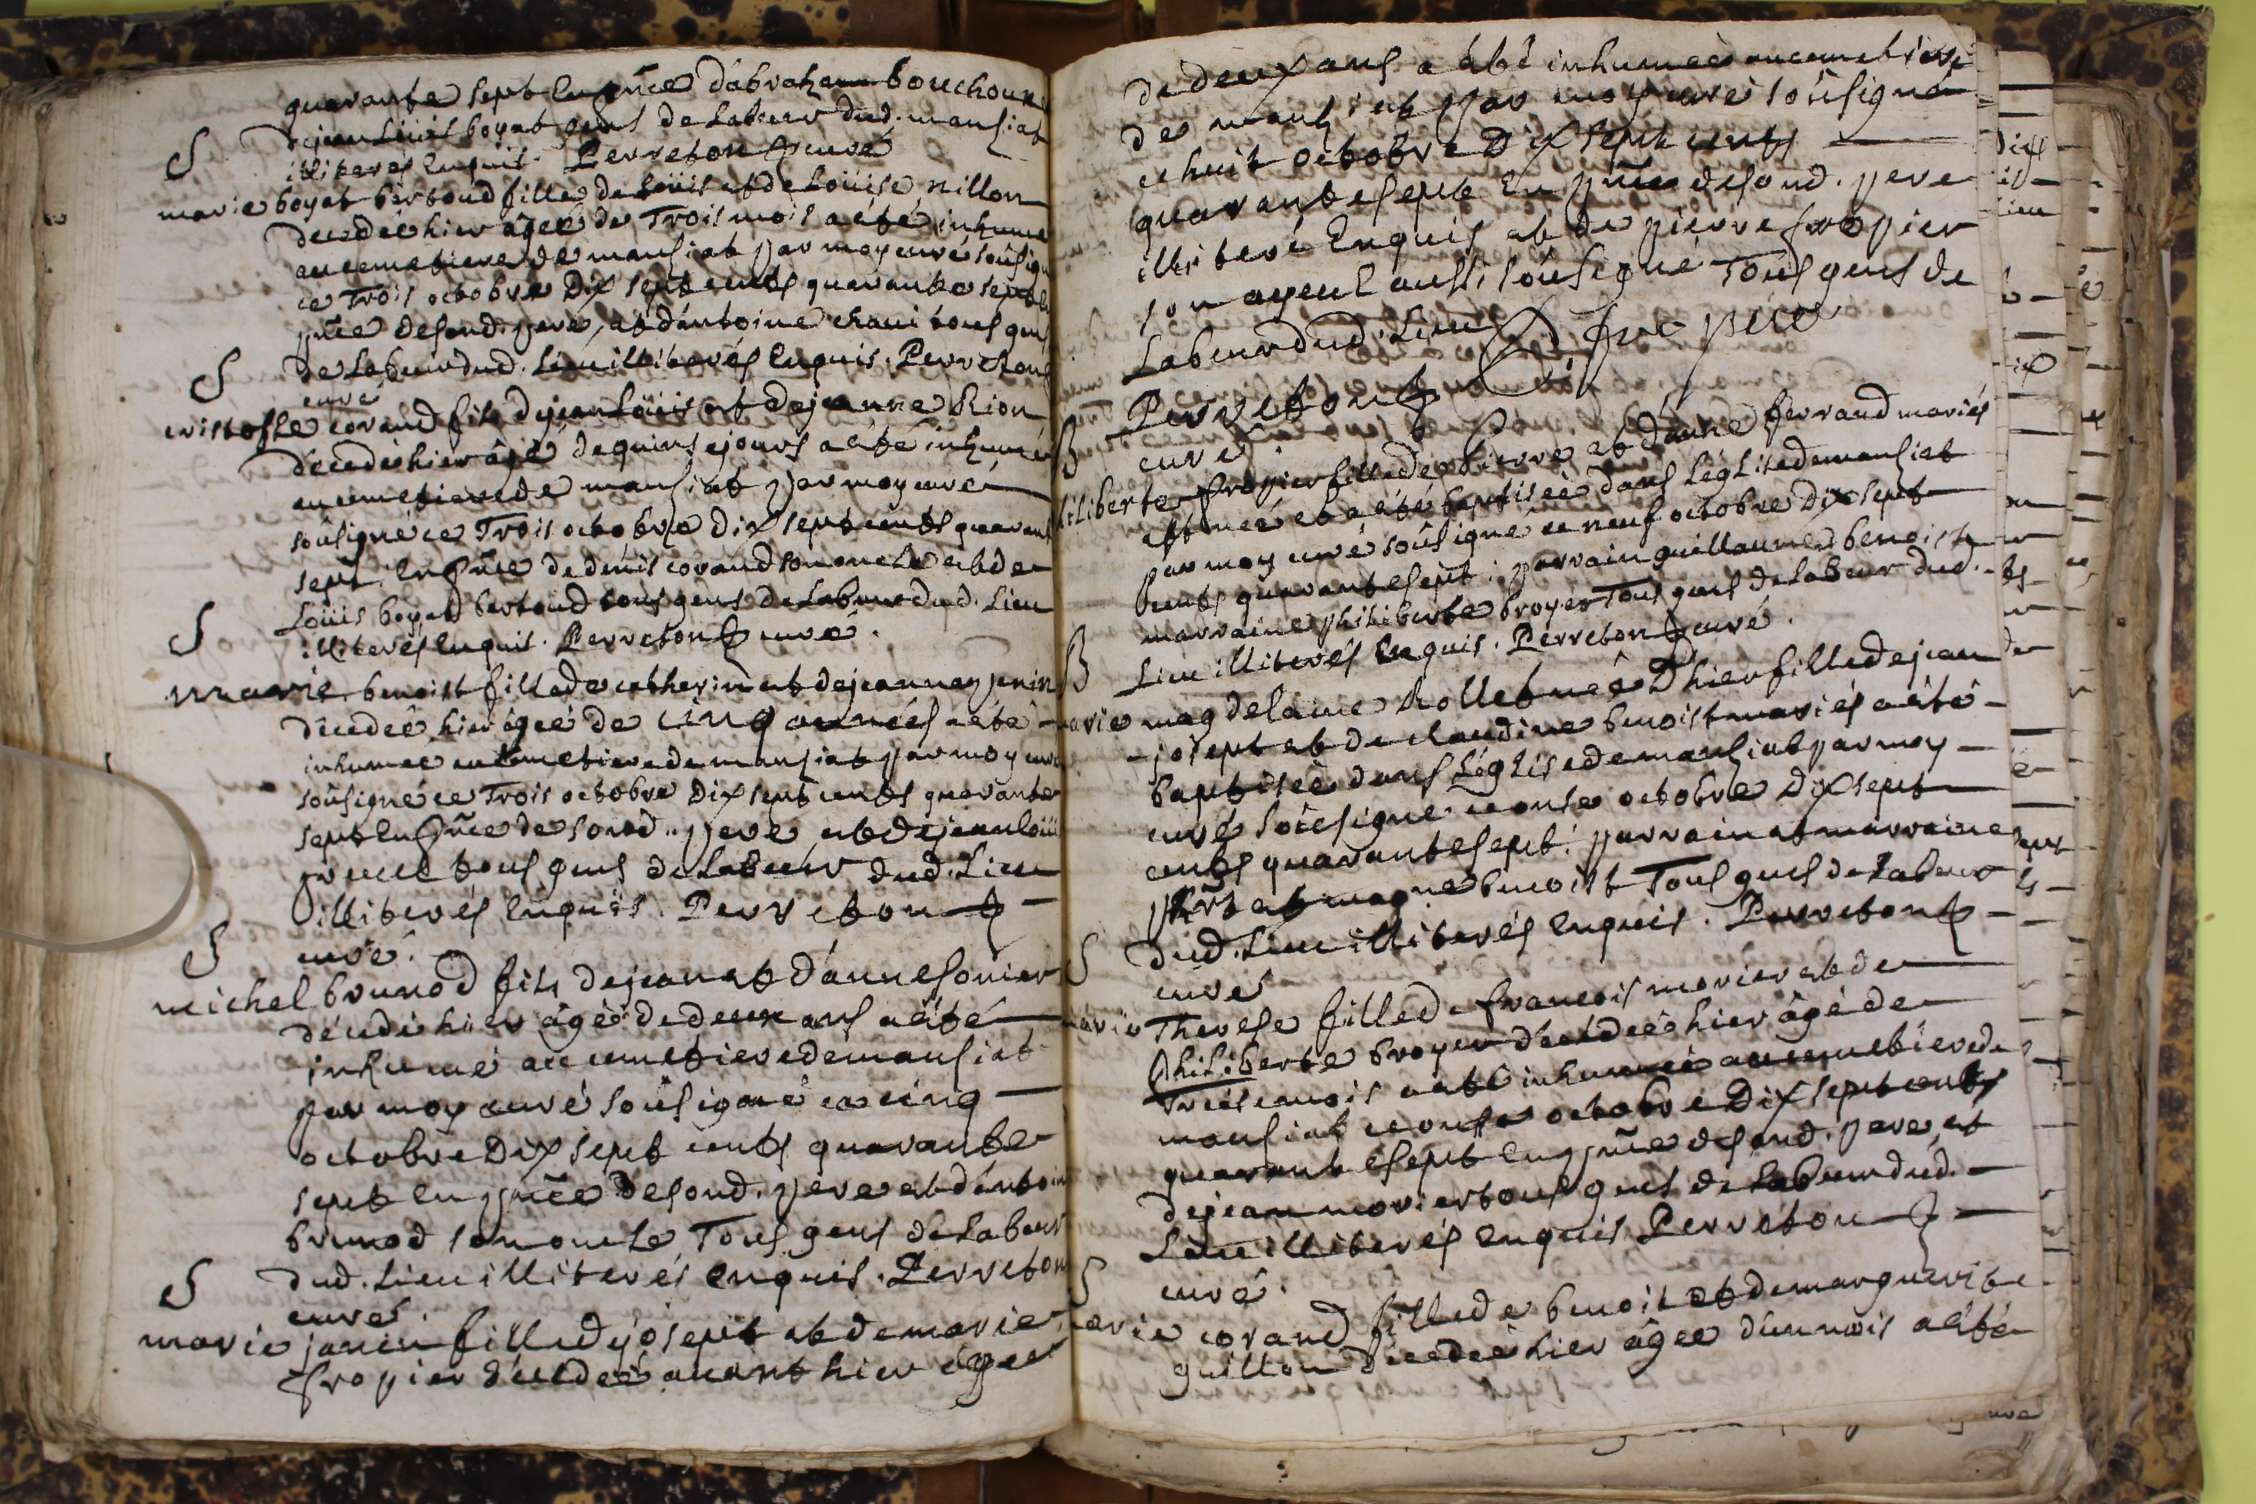 quarante sept en pñce d'abraham bouchoux
S
de jean Loüis boyat gens de Labeur dud. mansiat
illiterés enquis. Perreton curé
marie boyat bertoud fille de Loüis et de Loüise nillon
decedée hier âgée de Trois mois a été inhumé
au cemetiere de mansiat par moy curé soûsigné
ce Trois octobre Dix sept cents quarante sept en
pñce desond. pere, et d'antoine chani tous gens
S
de Labeur dud. Lieu illiterés enquis. Perreton
curé
cristofle corand fils de jean Loüis et de jeanne Rion
décedé hier âgé de quinse jours a été inhumé
au cemetiere de mansiat par moy curé
soûsigné ce Trois octobre dix sept cents quarante
sept. en pñce de denis corand son oncle et de
Loüis boyat bertoud tous gens de Labeur dud. Lieu
S
illiterés enquis. Perreton curé.
marie benoist fille de catherin et de jeanne janin
décedée hier âgée de cinq années a été
inhumee au cemetiere de mansiat par moy curé
soûsigné ce Trois octobre Dix sept cents quarante
sept en pñce de sond. pere et de jean loüis
tous gens de Labeur dud. Lieu
illiterés enquis. Perreton
S
curé.
michel brunod fils de jean et d'anne sonier
décedé hier âgé de deux ans a été
inhumé au cemetiere de mansiat
par moy curé soûsigné ce cinq
octobre Dix sept cents quarante
sept en pñce desond. pere et d'antoine
brunod son oncle Tous gens de Labeur
S
dud. Lieu illiterés enquis. Perreton
curé.
marie janin fille de joseph et de marie
fropier décedée avant hier âgee
de deux ans a été inhumée au cemetiere
de mansiat par moy curé soûsigné
ce huit octobre Dix sept cents
quarante sept en pñce desond. pere
illiteré enquis et de pierre fropier
son ayeul aussi soûsigné Tous gens de
Labeur dud. Lieu P. fropier
Perreton
B
curé
philiberte fropier fille de Pierre et d'anne ferrand mariés
est née et a été baptisée dans L'église de mansiat
par moy curé soûsigné ce neuf octobre Dix sept
cents quarante sept. parrain guillaume benoist
marraine philiberte broyer Tous gens de Labeur dud.
B
Lieu illiterés enquis. Perreton curé.
marie magdelaine Rollet née D'hier fille de jean
joseph et de claudine benoist mariés a été
baptisée dans L'église de mansiat par moy
curé soûsigné ce onse octobre Dix sept
cents quarante sept. parrain et marraine
benoist Tous gens de Labeur
S
dud. Lieu illiterés enquis. Perreton
curé
marie Therese fille de francois morier et de
philiberte broyer décedée hier âgé de
treise mois a été inhumée au cemetiere de
mansiat ce onse octobre Dix sept cents
quarante sept en pñce desond. pere, et
de jean morier tous gens de Labeur dud.
Lieu illiterés enquis Perreton
S
curé.
marie corand fille de benoit et de marguerite
guillon décedée hier âgée d'un mois a été